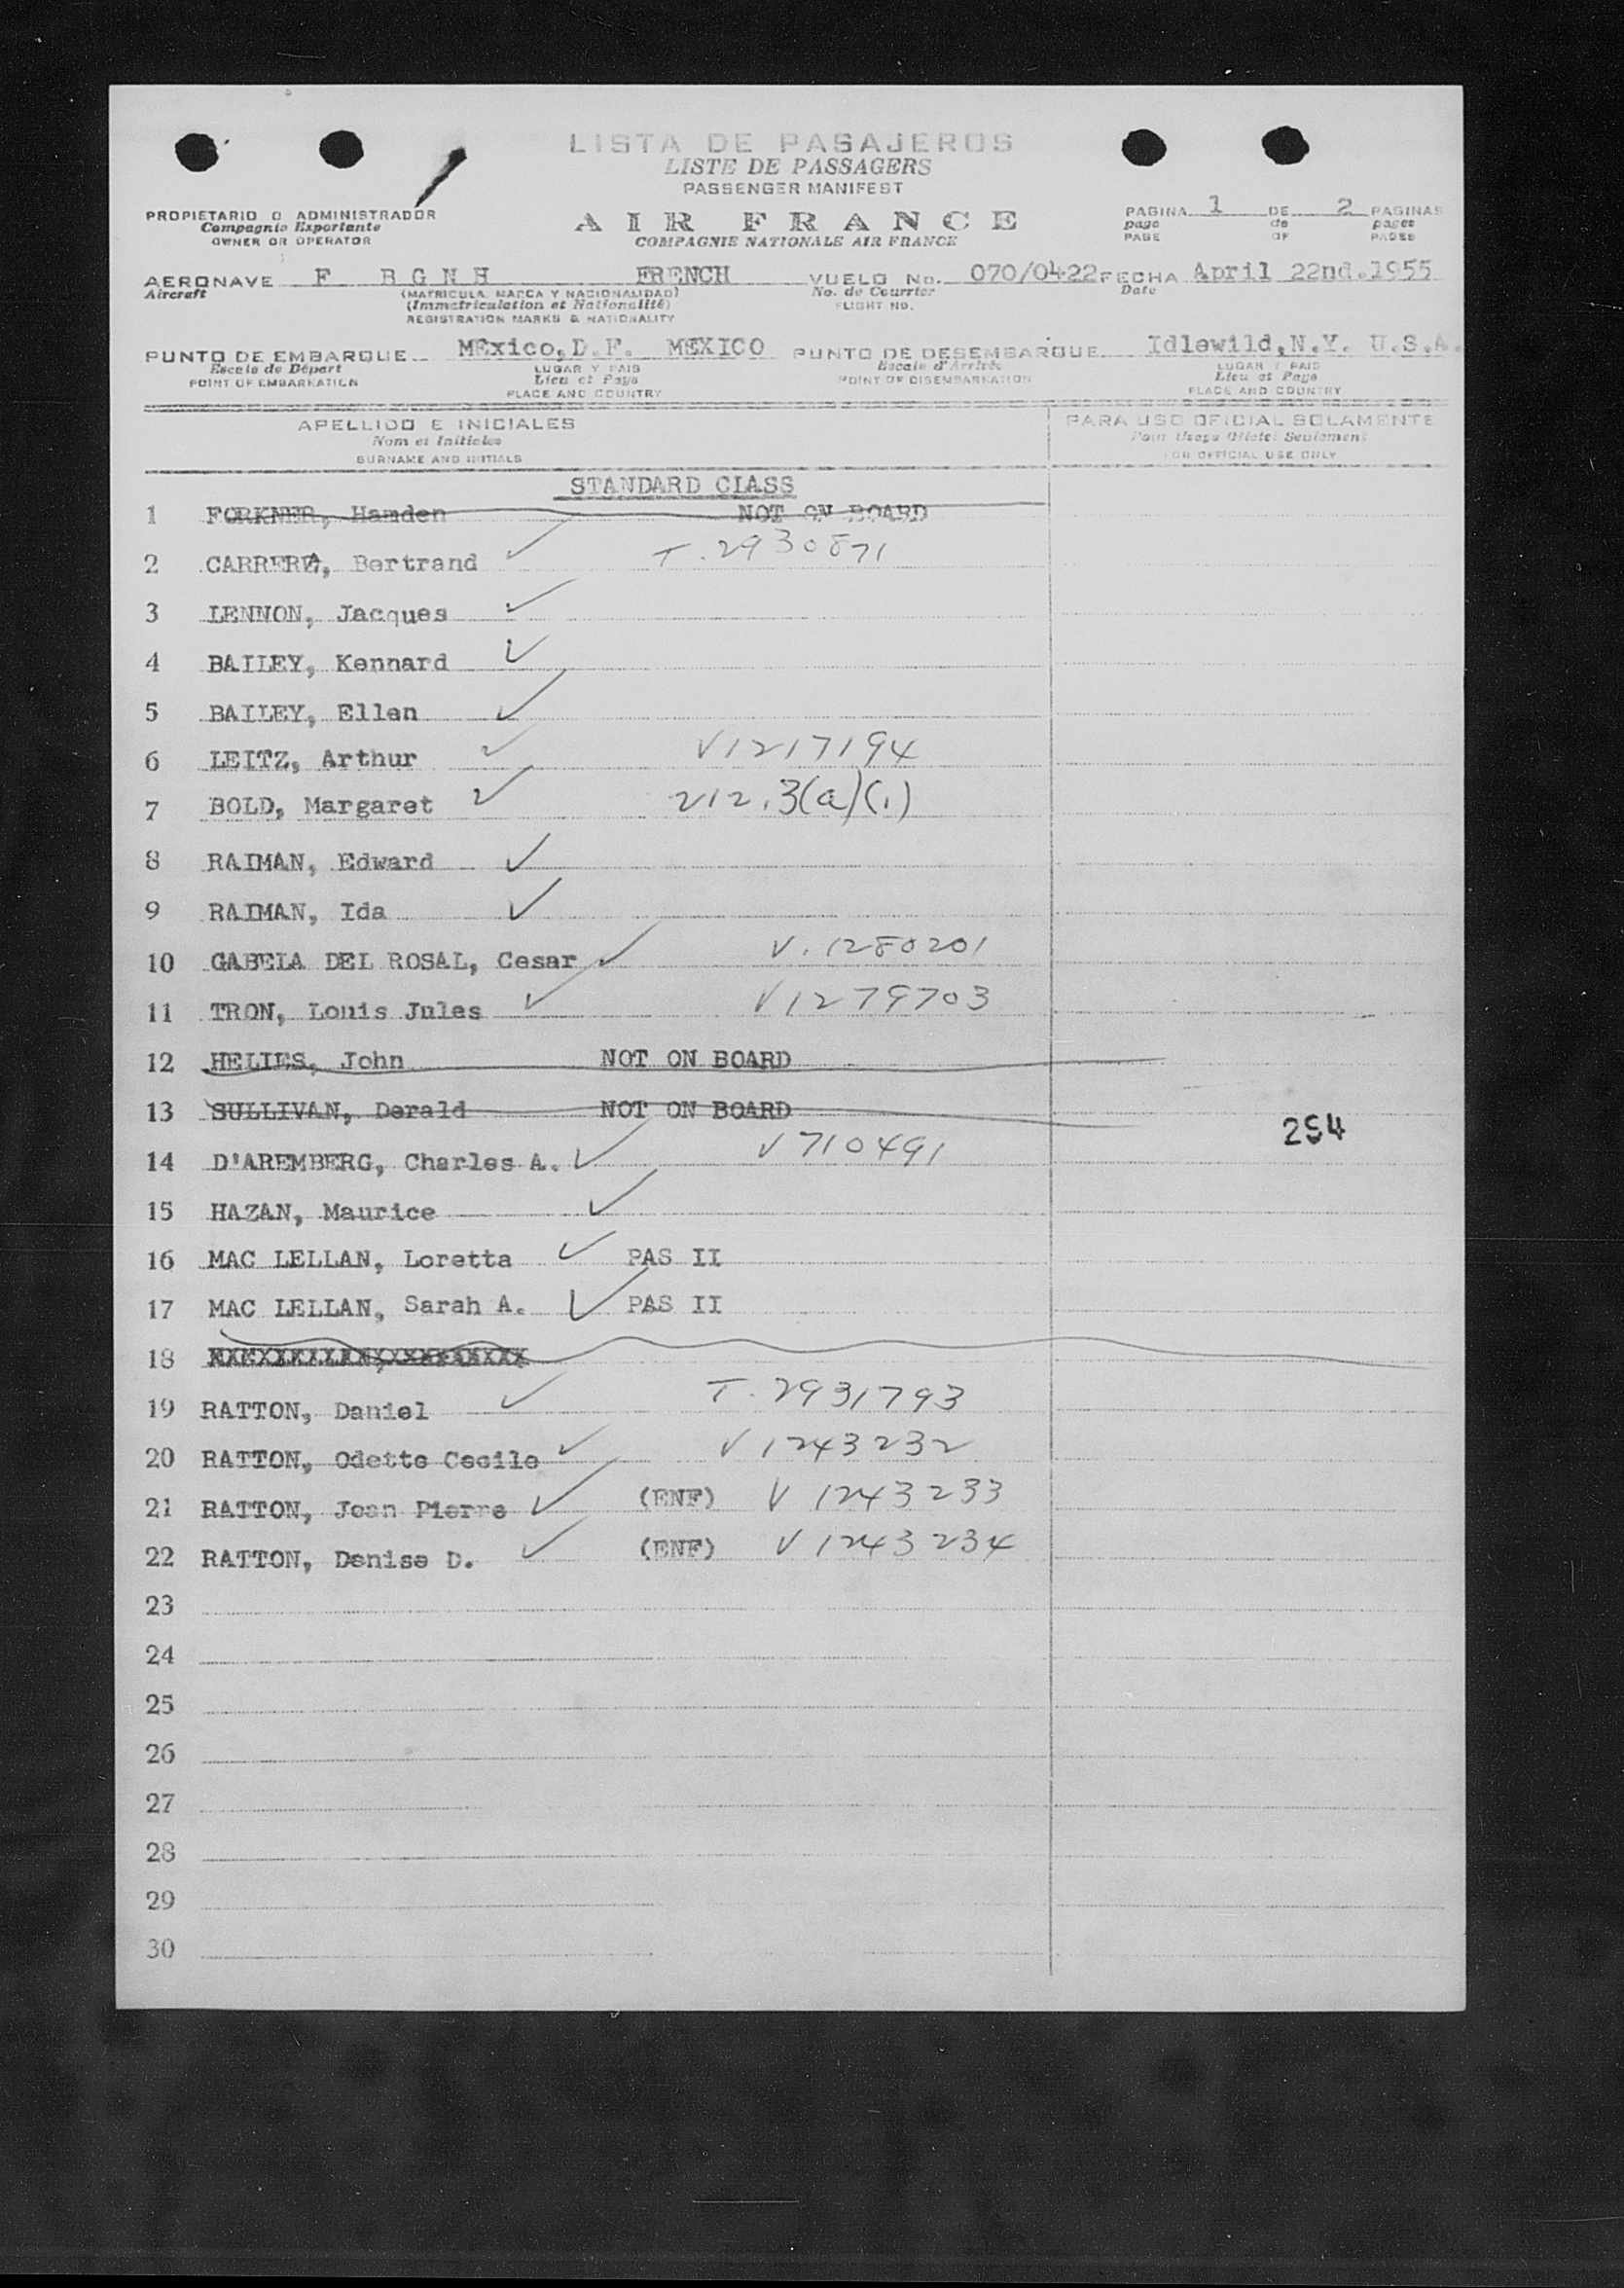 LISTA DE PASAJEROS
LISTE DE PASSAGERS
PASSENGER MANIFEST
PROPIETARIO O ADMINISTRADOR
Compagnie Exportante
OWNER OR OPERATOR
AIR FRANCE
COMPAGNIE NATIONALE AIR FRANCE
PAGINA 1 DE 2 PAGINAS
page de pages
PAGE OF PAGES
AERONAVE F BGNH FRENCH VUELO No. 070/0422 FECHA April 22nd.1955
Aircraft (MATRICULA MARCA Y NACIONALIDAD) No. de Courrier Date
(Immatriculation et Nationalité) FLIGHT NO.
REGISTRATION MARKS & NATIONALITY
PUNTO DE EMBARQUE MExico,D.F. MEXICO PUNTO DE DESEMBARQUE Idlewild,N.Y. U.S.A.
Escale de Départ LUGAR Y PAIS Escale d'Arrivée LUGAR Y PAIS
POINT OF EMBARKATION Lieu et Pays POINT OF DISEMBARKATION Lieu et Pays
PLACE AND COUNTRY PLACE AND COUNTRY
APELLIDO E INICIALES PARA USO OFICIAL SOLAMENTE
Nom et Initiales Pour Usage Officiel Seulement
SURNAME AND INITIALS FOR OFFICIAL USE ONLY
STANDARD CLASS
1 FORKNER, Hamden NOT ON BOARD
2 CARRERA, Bertrand T.2930871
3 LENNON, Jacques
4 BAILEY, Kennard
5 BAILEY, Ellen
6 LEITZ, Arthur V1217194
7 BOLD, Margaret 212.3(a)(1)
8 RAIMAN, Edward
9 RAIMAN, Ida
10 GABELA DEL ROSAL, Cesar V.1280201
11 TRON, Louis Jules V1279703
12 HELIES, John NOT ON BOARD
13 SULLIVAN, Derald NOT ON BOARD
254
14 D'AREMBERG, Charles A. V710491
15 HAZAN, Maurice
16 MAC LELLAN, Loretta PAS II
17 MAC LELLAN, Sarah A. PAS II
18
19 RATTON, Daniel T.2931793
20 RATTON, Odette Cecile V1243232
21 RATTON, Jean Pierre (ENF) V1243233
22 RATTON, Denise D. (ENF) V1243234
23
24
25
26
27
28
29
30